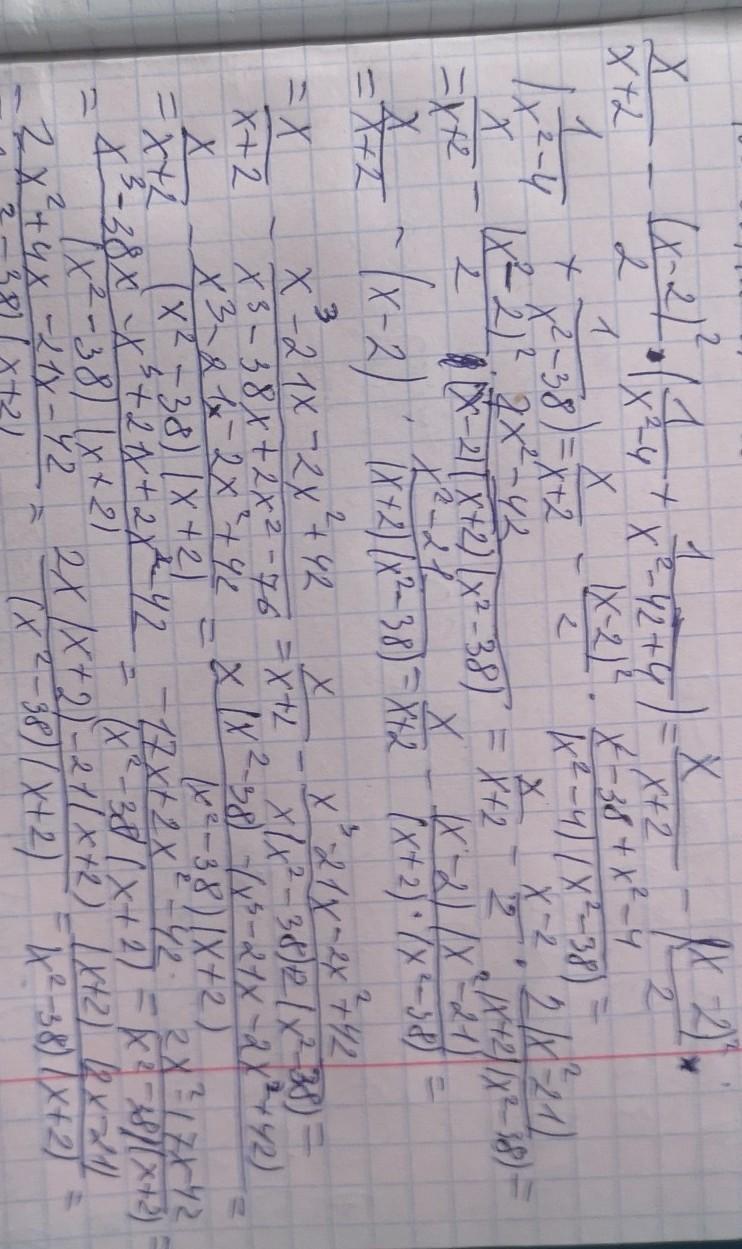 x/(x+2) - (x-2)²/2 · (1/(x²-4) + 1/(x²-42+4)) = x/(x+2) - (x-2)²/2 *
(1/(x²-4) + 1/(x²-38)) = x/(x+2) - (x-2)²/2 · (x²-38+x²-4)/((x²-4)(x²-38)) =
= x/(x+2) - (x-2)²/2 · (2x²-42)/((x-2)(x+2)(x²-38)) = x/(x+2) - (x-2)/2 · 2(x²-21)/((x+2)(x²-38)) =
= x/(x+2) - (x-2) · (x²-21)/((x+2)(x²-38)) = x/(x+2) - (x-2)(x²-21)/((x+2)·(x²-38)) =
= x/(x+2) - (x³-21x-2x²+42)/(x³-38x+2x²-76) = x/(x+2) - (x³-21x-2x²+42)/(x(x²-38)+2(x²-38)) =
= x/(x+2) - (x³-21x-2x²+42)/((x²-38)(x+2)) = (x(x²-38)-(x³-21x-2x²+42))/((x²-38)(x+2)) =
= (x³-38x-x³+21x+2x²-42)/((x²-38)(x+2)) = (-17x+2x²-42)/((x²-38)(x+2)) = (2x²-17x-42)/((x²-38)(x+2)) =
= (2x²+4x-21x-42)/((x²-38)(x+2)) = (2x(x+2)-21(x+2))/((x²-38)(x+2)) = ((x+2)(2x-21))/((x²-38)(x+2)) =